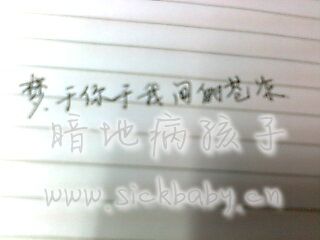 梦.于你于我同倒苍凉
暗地病孩子
www.sickbaby.cn